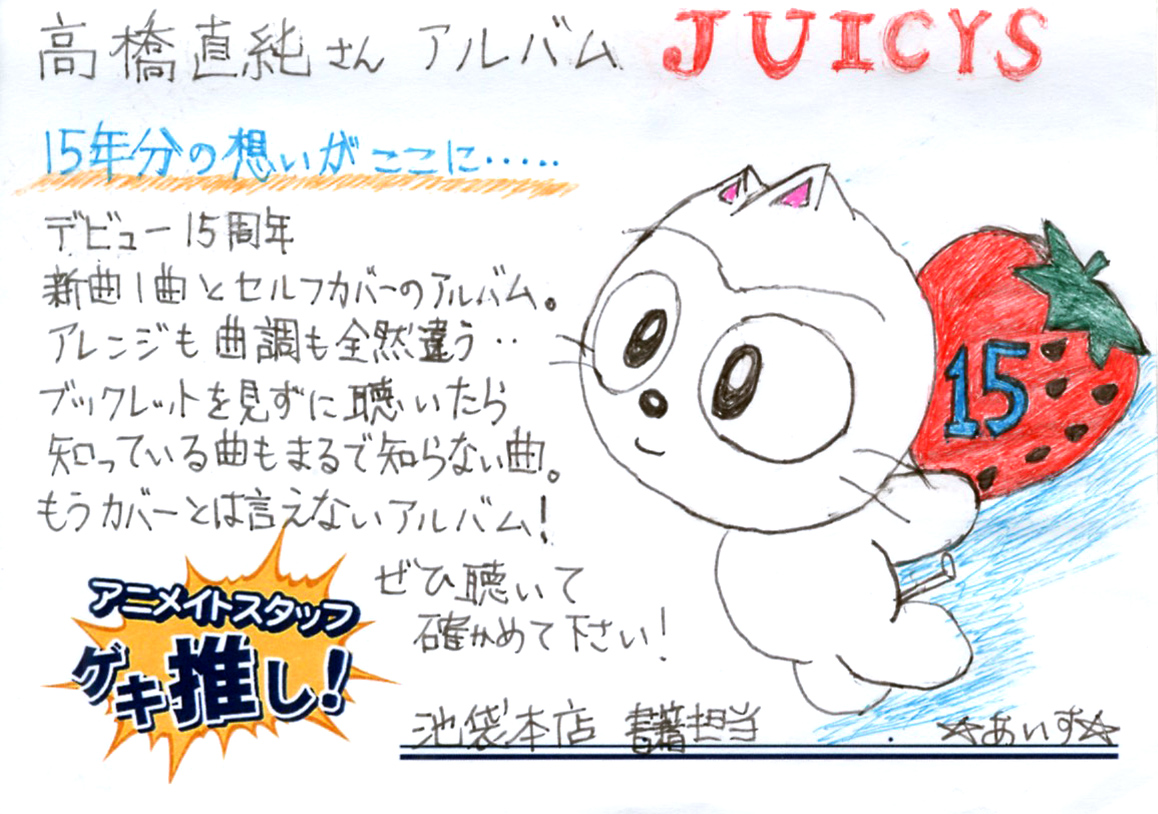 高橋直純さん アルバム JUICYS
15年分の想いがここに‥‥‥
デビュー15周年
新曲1曲とセルフカバーのアルバム。
アレンジも曲調も全然違う‥
ブックレットを見ずに聴いたら
知っている曲もまるで知らない曲。
もうカバーとは言えないアルバム!
ぜひ聴いて
確かめて下さい!
15
アニメイトスタッフ
ゲキ推し!
池袋本店 書籍担当 ☆あいす☆